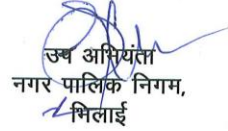 उप अभियंता
नगर पालिक निगम,
भिलाई